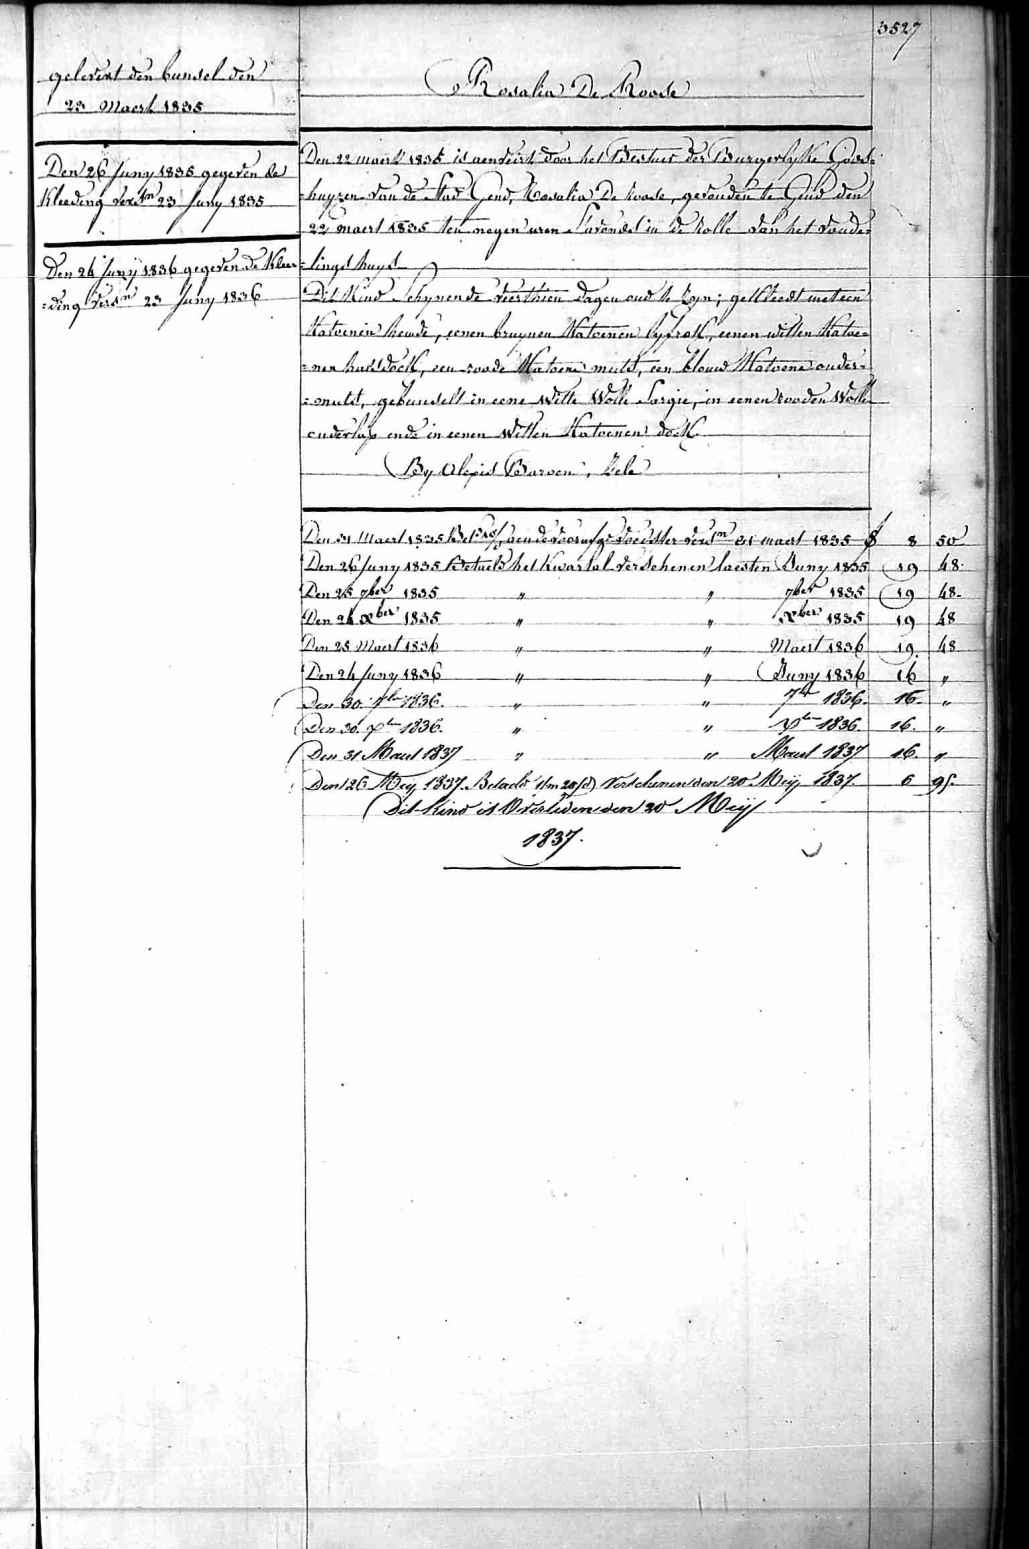 3527
gelevert den bunsel den
23 Maert 1835
Rosalia De Roose
Den 26 Juny 1835 gegeven de
Kleeding vers.en 23 Juny 1835
Den 24 Juny 1836 gegeven de Klee-
=ding vers.n 23 Juny 1836
Den 22 maert 1835 is aenveirt door het Bestuer der Burgerlyke Gods=
=huyzen van de Stad Gend, Rosalia De Roose, gevonden te Gend den
22 maert 1835 ten negen uren s'avonds in de Rolle van het vonde=
=lings huys
Dit Kind schynende veerthien dagen oud te zyn; gekleedt met een
Katoenen hemde, eenen bruynen Katoenen lyfrok, eenen witten Katoe=
=nen halsdoek, een roode Katoene muts, een blauw Katoene onder=
=muts, gebunselt in eene witte Wolle Sargie, in eenen rooden Wolle
onderlap ende in eenen witten Katoenen doek.
By Alexis Baroen, Zele
Den 31 Maert 1835 aen de voedster vers.n 31 maert 1835 8 50
Den 26 Juny 1835 Betaelt het Kwartal verschenen laesten Juny 1835 19 48
Den 25 7ber 1835 " " 7ber 1835 19 48
Den 24 Xber 1835 " " Xber 1835 19 48
Den 25 Maert 1836 " " Maert 1836 19 48
Den 24 Juny 1836 " " Juny 1836 16 "
Den 30. 7ber 1836. " " 7ber 1836. 16. "
Den 30. Xber 1836. " " Xber 1836. 16. "
Den 31 Maert 1837 " " Maert 1837 16. "
Den 26 Mey 1837. Betaelt verschenen den 20 Meij 1837. 6 95.
Dit Kind is Overleden den 20 Meij
1837.